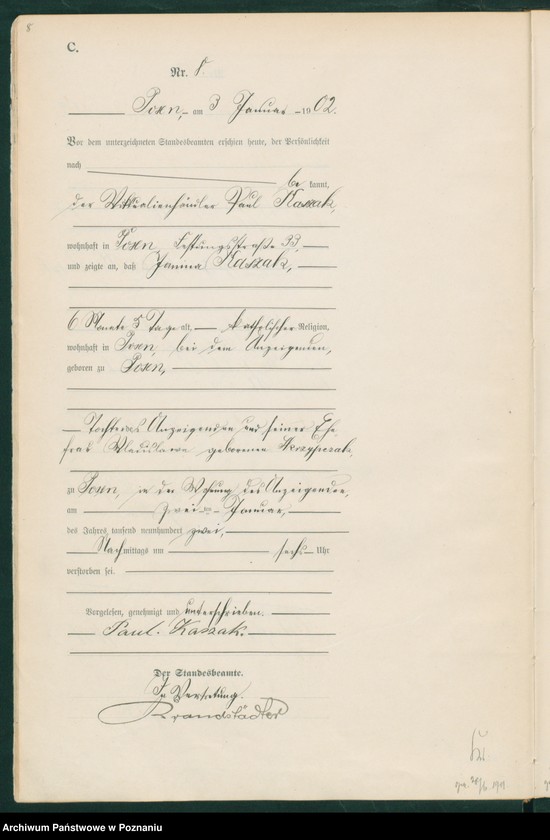 8
C.
Nr. 8.
Posen, am 3 Januar 1902.
Vor dem unterzeichneten Standesbeamten erschien heute, der Persönlichkeit
nach
be kannt,
der Viktualienhändler Paul Kaszak,
wohnhaft in Posen, Festungsstraße 33,
und zeigte an, daß Janina Kaszak,
6 Monate 5 Tage alt, katholischer Religion,
wohnhaft in Posen, bei dem Anzeigenden,
geboren zu Posen,
Tochter des Anzeigenden und seiner Ehe-
frau Wladislawa geborenen Skrzypczak,
zu Posen, in der Wohnung des Anzeigenden,
am zwei- Januar,
des Jahres tausend neunhundert zwei,
Nachmittags um sechs Uhr
verstorben sei.
Vorgelesen, genehmigt und unterschrieben.
Paul. Kaszak.
Der Standesbeamte.
In Vertretung.
Brandstädter
1901
Archiwum Państwowe w Poznaniu
Archiwum Państwowe w Poznaniu